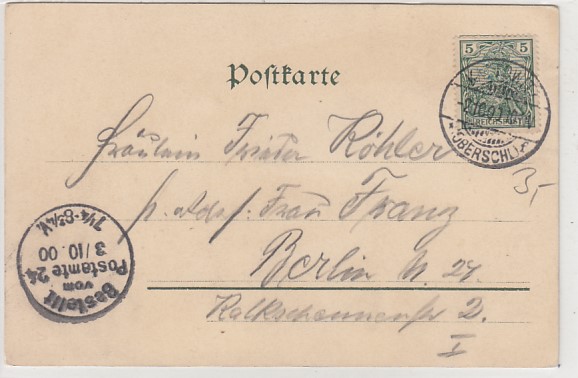 Postkarte
5 5
REICHSPOST
(OBERSCHL)
Fräulein Frieda Köhler
p. Adr. Frau Franz
Berlin N. 24.
Kalkscheunenstr 2.
I
3,-
Bestellt
vom
Postamte 24
3/10.00
7¼-8¾V.